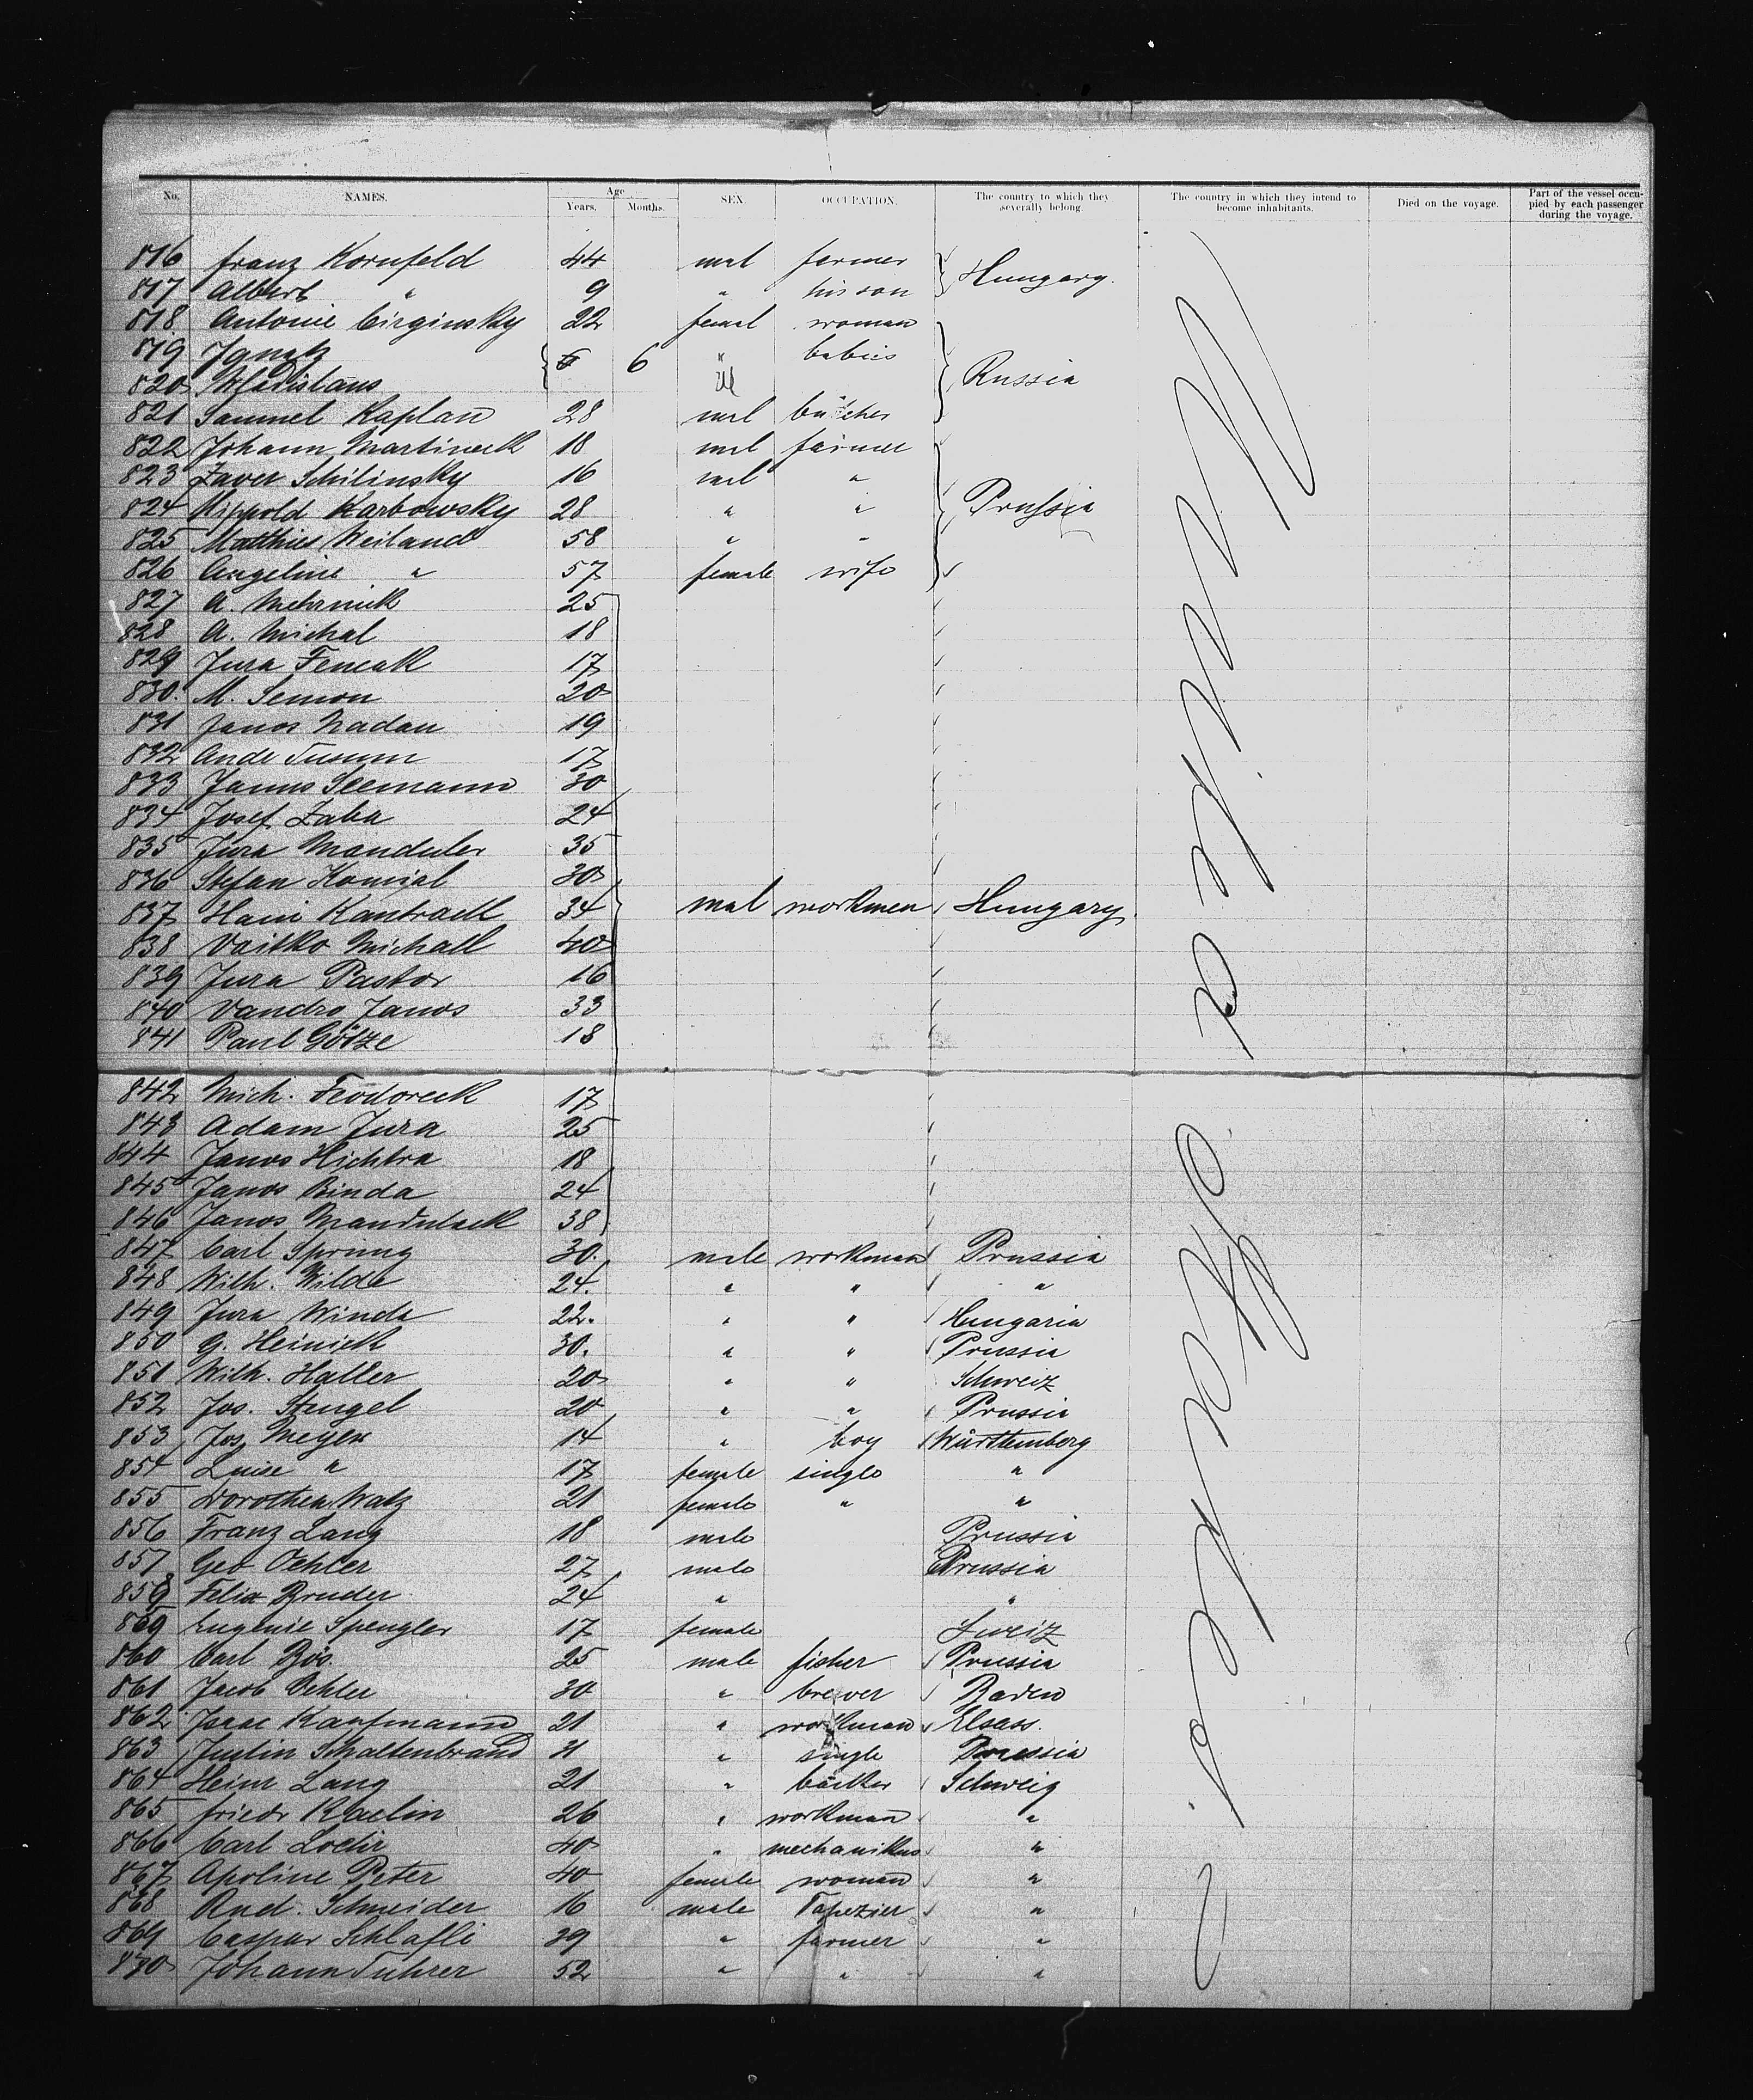 No. NAMES. Age Years. Months. SEX. OCCUPATION. The country to which they severally belong. The country in which they intend to become inhabitants. Died on the voyage. Part of the vessel occupied by each passenger during the voyage.
816 franz Kornfeld 44 mal farmer Hungary.
817 Albert " 9 " his son
818 Antonie Cirginsky 22 femal woman
819 Ignatz 6 " babies
820 Wladislaus Russia
821 Samuel Kaplan 28 mal butcher
822 Johann Martineck 18 mal farmer
823 Xaver Schilinsky 16 mal "
824 Hippold Karbowsky 28 " " Prussia
825 Matthies Weiland 58 " "
826 Angeline " 57 female wife
827 A. Mehrnick 25
828 A. Michal 18
829 Jura Fencak 17
830. M. Semon 20
831 Janos Nadan 19
832 Ande Tusum 17
833 Janus Seemann 30
834 Josef Zaba 24
835 Jura Manduler 35
836 Stefan Komjal 30
837 Hain Kantrack 34 mal workmen Hungary.
838 Voitko Michall 40
839 Jura Pastor 16
840 Vandro Janos 33
841 Paul Götze 18
842 Mich. Feodoreck 17
843 Adam Jura 25
844 Janos Hichtra 18
845 Janos Binda 24
846 Janos Mandulack 38
847 Carl Sprung 30. male workman Prussia
848 Wilh. Wilde 24. " " "
849 Jura Winda 22. " " Hungaria
850 G. Heinick 30. " " Prussia
851 Wilh. Haller 20 " " Schweiz
852 Jos. Stengel 20 " " Prussia
853 Jos. Meyer 14 " boy Württemberg
854 Luise " 17 female single "
855 Dorothea Watz 21 female " "
856 Franz Lang 18 male Prussia
857 Geo Oehler 27 male Prussia
858 Felix Bruder 24 " "
859 Eugenie Spengler 17 female Sweiz
860 Carl Bös. 25 male fisher Prussia
861 Jacob Oehler 30 " brewer Baden
862 Isaac Kaufmann 21 " workman Elsass.
863 Justin Schaltenbrand 21 " single Prussia
864 Heinr Lang 21 " bäcker Schweiz
865 friedr Kaelin 26 " workman "
866 Carl Loehr 40 " mechanikus "
867 Apoline Peter 40 female woman "
868 Rud. Schneider 16 male Tapezier "
869 Caspar Schlafli 29 " farmer "
870 Johann Tuhrer 52 " " "